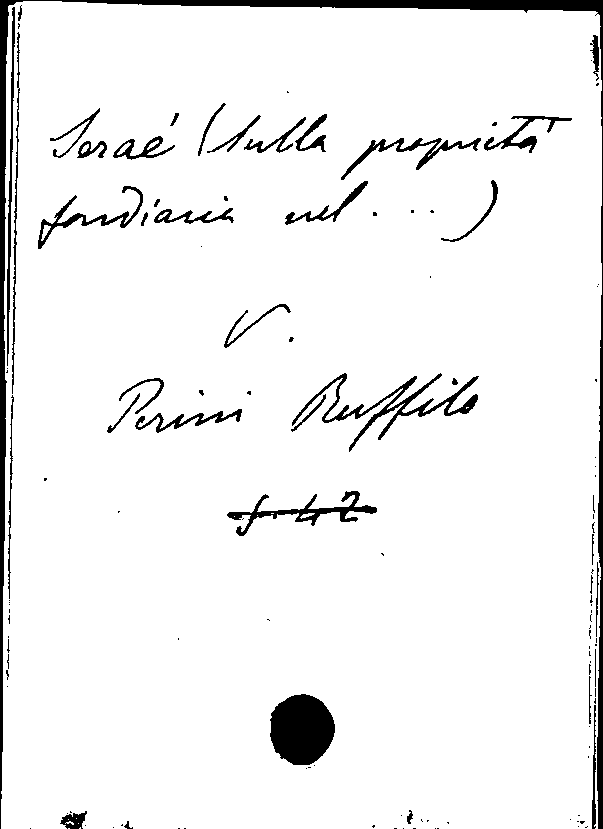 Seraé (Sulla proprietà
fondiaria nel . . . )
V.
Perini Ruffilo
f. 42